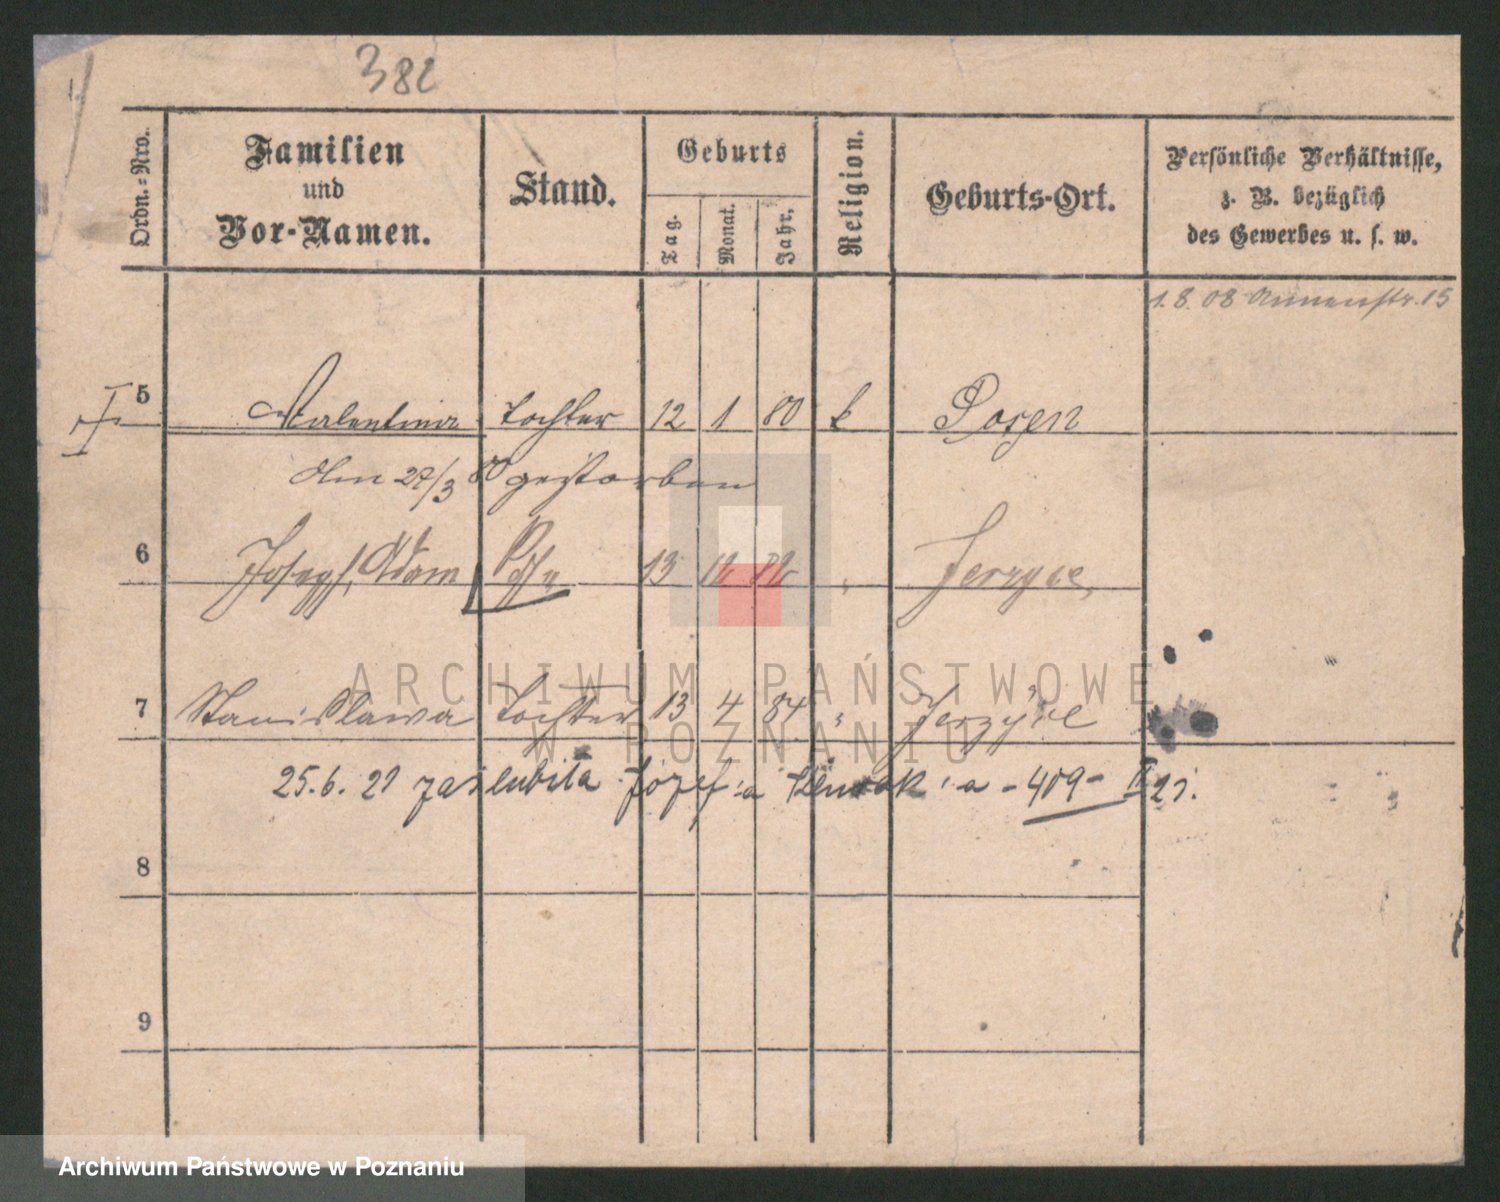 382
Ordn.=Nro.
Familien
und
Vor-Namen.
Stand.
Geburts
Tag.
Monat.
Jahr.
Religion.
Geburts-Ort.
Persönliche Verhältnisse,
z. B. bezüglich
des Gewerbes u. s. w.
1. 8. 08 Annenstr. 15
5 Valentina Tochter 12 1 80 k Posen
Am 27/3 80 gestorben
6 Joseph, Adam Sohn 13 12 82 " Jerzyce,
7 Stanislawa Tochter 13 4 84 " Jerzyce
25. 6. 21 zaślubiła Józef:a :a - 409 - II 21.
8
9
ARCHIWUM PAŃSTWOWE
W POZNANIU
Archiwum Państwowe w Poznaniu